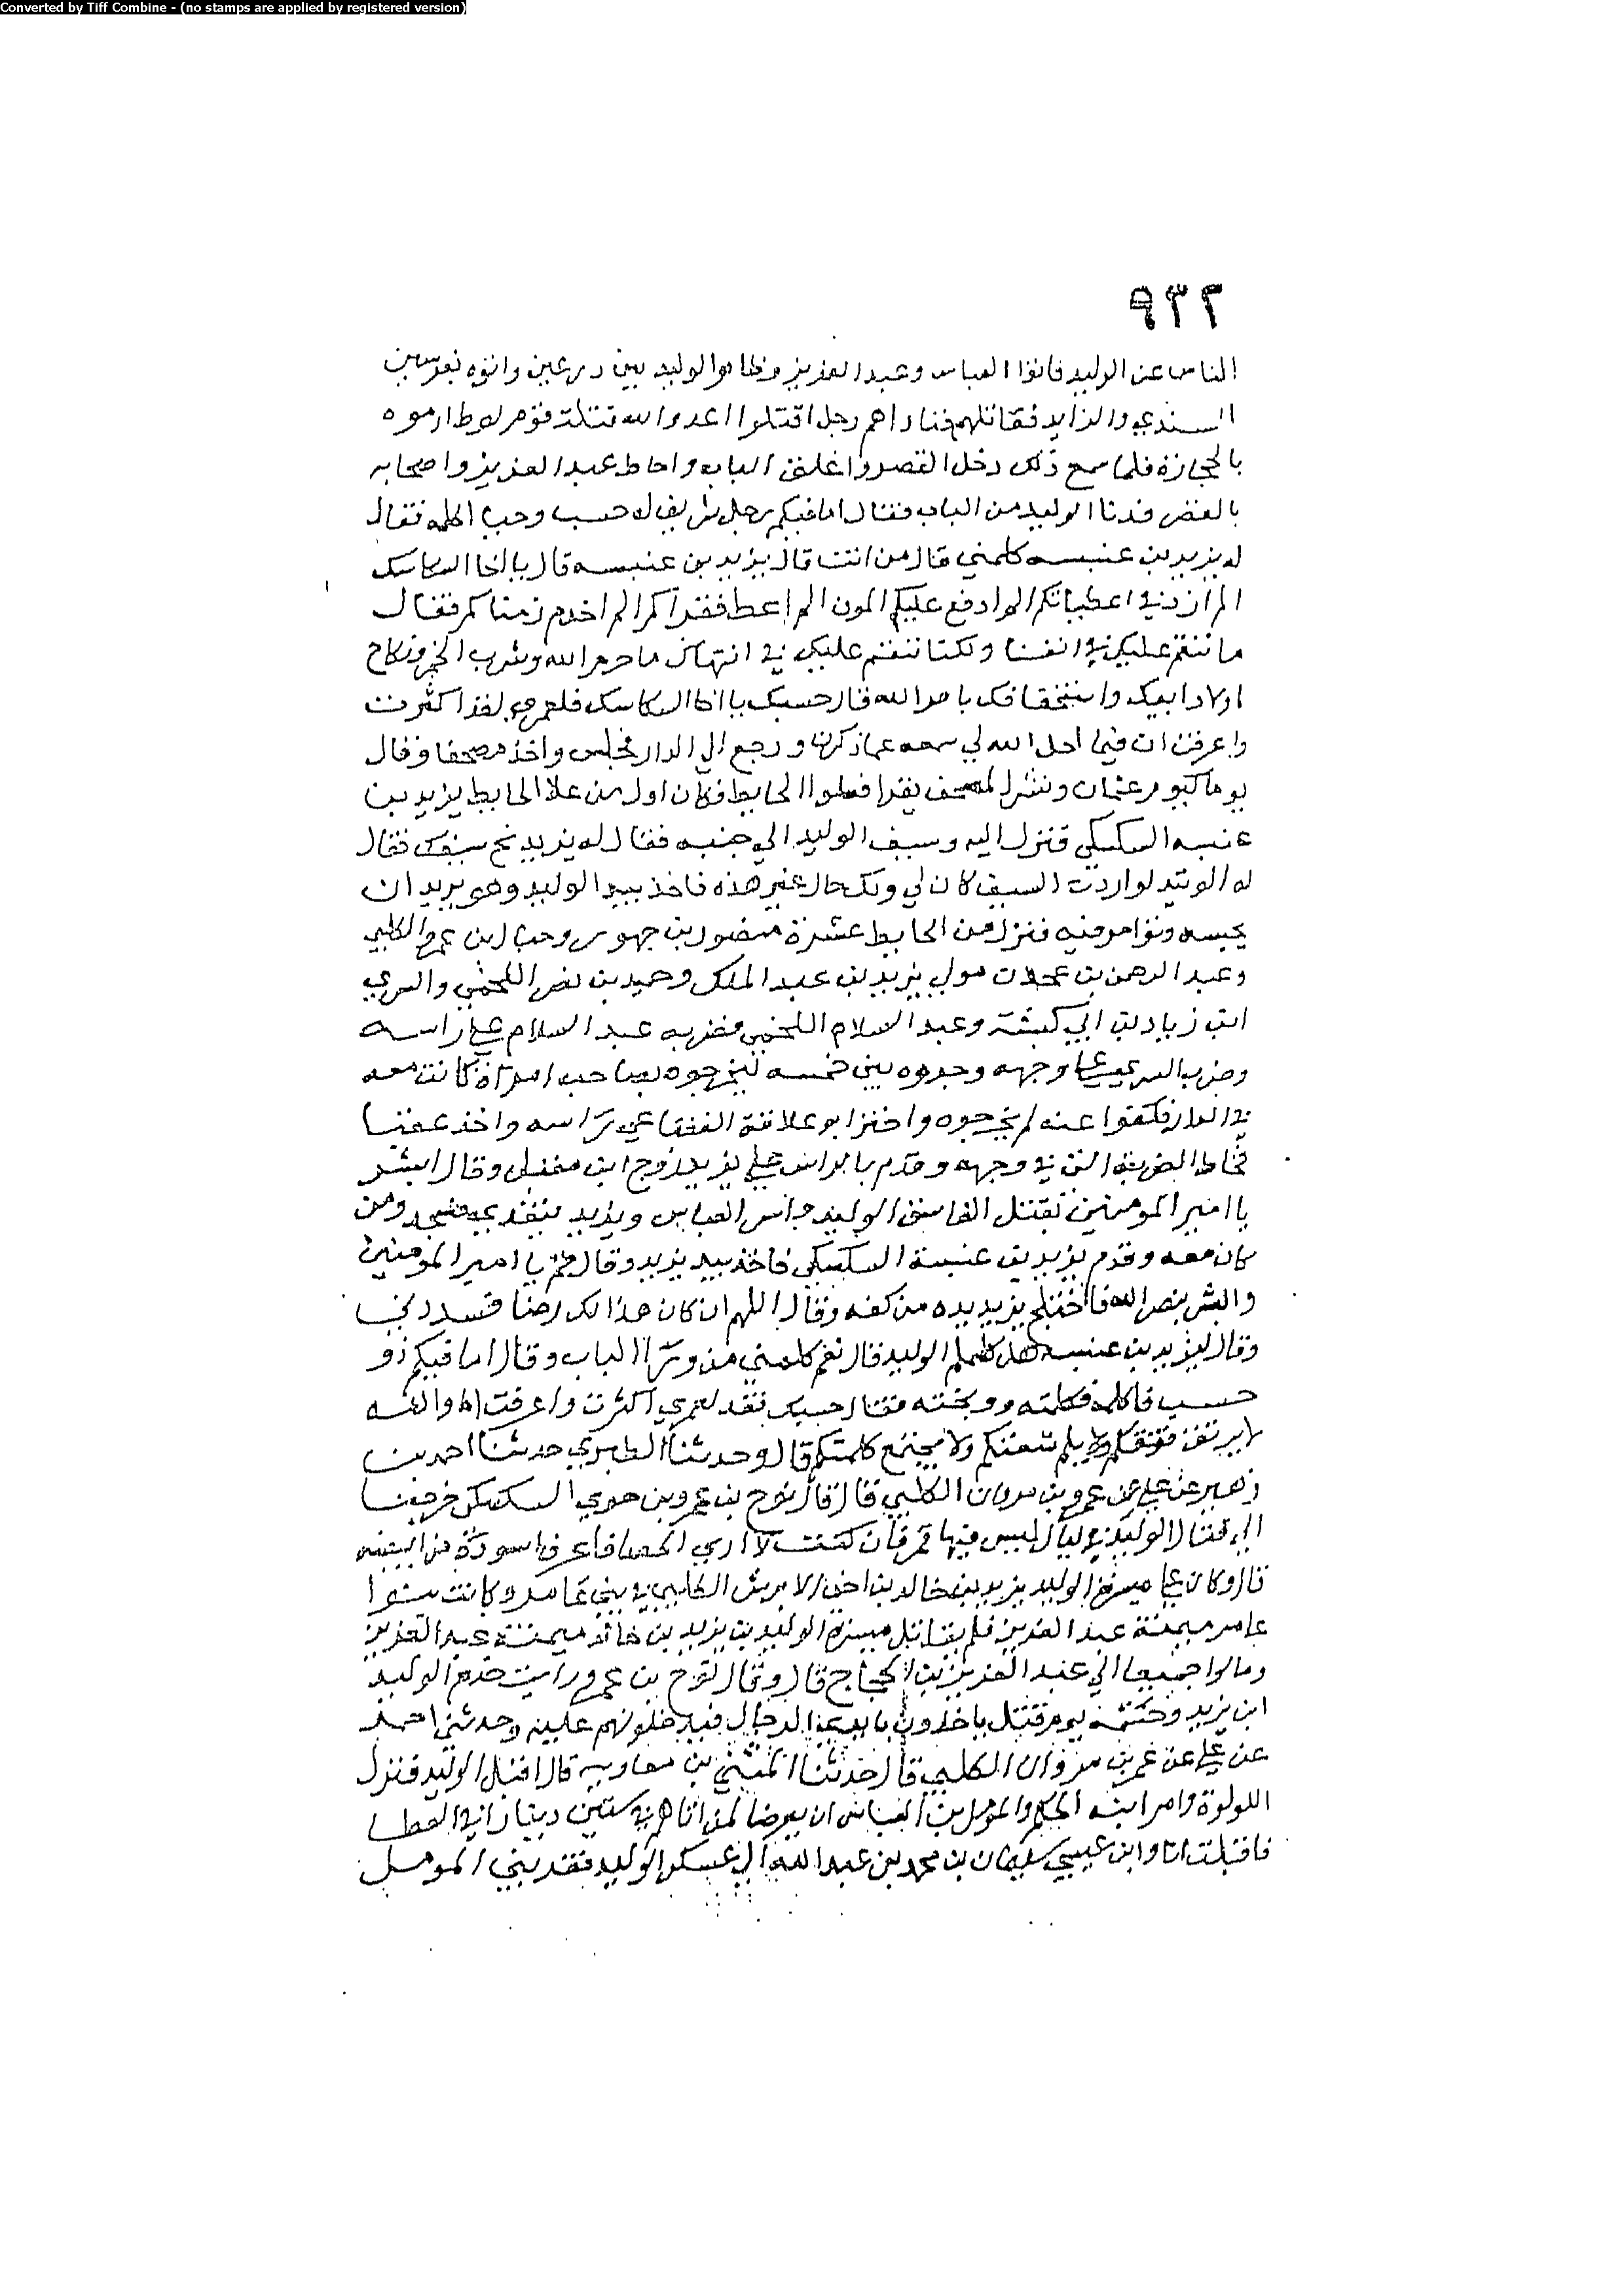 Converted by Tiff Combine - (no stamps are applied by registered version)
٩٣٢
الناس عن الوليد فاتوا العباس وعبد العزيز وظاهر الوليد بين درعين واتوه بفرسين
السندي والزايد فقاتلهم فناداهم رجل اقتلوا اعدو الله قتلة قوم لوط ارموه
بالحجارة فلما سمع ذلك دخل القصر واغلق الباب واحاط عبد العزيز واصحابه
بالقصر فدنا الوليد من الباب فقال اما فيكم رجل شريف له حسب وحيا اكلمه فقال
له يزيد بن عنبسه كلمني قال من انت قال يزيد بن عنبسه قال يا اخا السكاسك
الم ازد في اعطياتكم الم ادفع عليكم المون الم اعط فقراكم الم اخدم زمناكم فقال
ما ننقم عليك في انفسنا ولكنا ننقم عليك في انتهاك ما حرم الله وشرب الخمر ونكاح
اولاد ابيك واستخفافك بامر الله قال حسبك يا اخا السكاسك فلعمري لقد اكثرت
واعرقت ان فيما احل الله لي سعه عما ذكرت ورجع الي الدار فجلس واخذ مصحفا وقال
يوما كيوم عثمان ونشر المصحف يقرا فعلوا الحايط فكان اول من علا الحايط يزيد بن
عنبسه السكسكي فنزل اليه وسيف الوليد الي جنبه فقال له يزيد نح سيفك فقال
له الوليد لو اردت السيف كان لي ولك حال غير هذه فاخذ بيد الوليد وهو يريد ان
يحبسه ونوامر فيه فنزل من الحايط عشرة منصور بن جهور وحبال بن عمرو الكلبي
وعبد الرحمن بن عجلان مولي يزيد بن عبد الملك وحميد بن نصر اللخمي والسري
ابن زياد بن ابي كبشة وعبد السلام اللخمي فضربه عبد السلام علي راسه
وضربه السري علي وجهه وجروه بين خمسه ليخرجوه فصاحت امراة كانت معه
في الدار فكفوا عنه لم يخرجوه واحتز ابو علاقة القضاعي راسه واخذ عقبا
فخاط الضربه التي في وجهه وقدم بالراس علي يزيد روح ابن مقبل وقال ابشر
يا امير المومنين بقتل الفاسق الوليد واسر العباس ويزيد يتغدي فسجد ومن
كان معه وقدم يزيد بن عنبسة السكسكي فاخذ بيد يزيد وقال قم يا امير المومنين
وابشر بنصر الله فاختلج يزيد يده من كفه وقال اللهم ان كان هذا لك رضا فسددني
وقال ليزيد بن عنبسه هل كلمكم الوليد قال نعم كلمني من ورا الباب وقال اما فيكم ذو
حسب فاكلمه فكلمته ووبخته فقال حسبك فقد لعمري اكثرت واعرقت اما والله
لا يرتق فتقكم ولا يلم شعثكم ولا يجتمع كلمتكم قال وحدثنا الطبري حدثنا احمد بن
زهير عن علي عن عمرو بن مروان الكلبي قال قال نوح بن عمرو بن حوي السكسكي خرجنا
الي قتال الوليد في ليال ليس فيها قمر فان كنت لاري الحصا فاعرف اسوده من ابيضه
قال وكان علي ميسرة الوليد يزيد بن خالد ابن اخي الابرش الكلبي في بني عامر وكانت بنوا
عامر ميمنة عبد العزيز فلم يقاتل ميسرة الوليد بن يزيد بن خالد ميمنة عبد العزيز
ومالوا جميعا الي عبد العزيز بن الحجاج قال وقال نوح بن عمرو رايت خدم الوليد
ابن يزيد وحشمه يوم قتل ياخذون بايدي الرجال فيدخلونهم عليه وحدثني احمد
عن علي عن عمر بن مروان الكلبي قال حدثنا المثني بن معاوية قال اقبل الوليد فنزل
اللولوة وامر ابنه الحكم والمومل بن العباس ان يعرضا لمن اتاهما في ستين دينارا في العطا
فاقبلت انا وابن عمي سليمان بن محمد بن عبد الله الي عسكر الوليد فقربني المومل